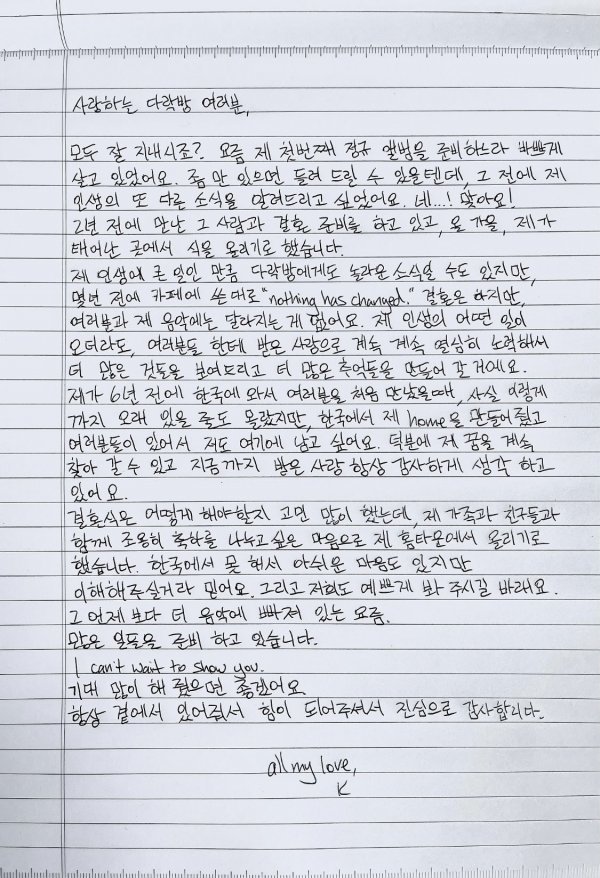 사랑하는 다락방 여러분,
모두 잘 지내시죠? 요즘 제 첫번째 정규 앨범을 준비하느라 바쁘게
살고 있었어요. 좀 만 있으면 들려 드릴 수 있을텐데, 그 전에 제
인생의 또 다른 소식을 알려드리고 싶었어요. 네...! 맞아요!
2년 전에 만난 그 사람과 결혼 준비를 하고 있고, 올 가을, 제가
태어난 곳에서 식을 올리기로 했습니다.
제 인생에 큰 일인 만큼 다락방에게도 놀라운 소식일 수도 있지만,
몇년 전에 카페에 쓴대로 "nothing has changed." 결혼은 하지만,
여러분과 제 음악에는 달라지는 게 없어요. 제 인생의 어떤 일이
오더라도, 여러분들 한테 받은 사랑으로 계속 계속 열심히 노력해서
더 많은 것들을 보여드리고 더 많은 추억들을 만들어 갈거에요.
제가 6년 전에 한국에 와서 여러분을 처음 만났을때, 사실 이렇게
까지 오래 있을 줄도 몰랐지만, 한국에서 제 home을 만들어줬고
여러분들이 있어서 저도 여기에 남고 싶어요. 덕분에 제 꿈을 계속
찾아 갈 수 있고 지금까지 받은 사랑 항상 감사하게 생각 하고
있어요.
결혼식은 어떻게 해야할지 고민 많이 했는데, 제 가족과 친구들과
함께 조용히 축하를 나누고 싶은 마음으로 제 홈타운에서 올리기로
했습니다. 한국에서 못 해서 아쉬운 마음도 있지만
이해해주실거라 믿어요. 그리고 저희도 예쁘게 봐 주시길 바래요.
그 언제 보다 더 음악에 빠져 있는 요즘,
많은 일들을 준비 하고 있습니다.
I can't wait to show you.
기대 많이 해 줬으면 좋겠어요
항상 곁에서 있어줘서 힘이 되어주셔서 진심으로 감사합니다.
all my love,
K